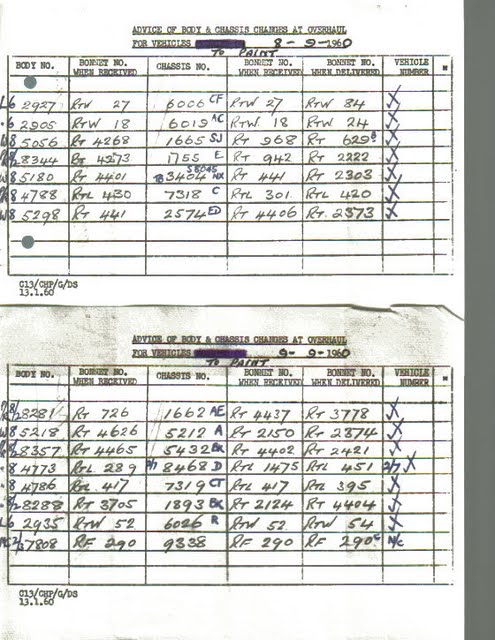 ADVICE OF BODY & CHASSIS CHANGES AT OVERHAUL
FOR VEHICLES 8-9-1960
TO PAINT
BODY NO. BONNET NO. WHEN RECEIVED CHASSIS NO. BONNET NO. WHEN RECEIVED BONNET NO. WHEN DELIVERED VEHICLE NUMBER
L6 2927 RTW 27 6006 CF RTW 27 RTW 84
6 2905 RTW 18 6019 AC RTW 18 RTW 24
W8 5056 RT 4268 1665 SJ RT 968 RT 629
8344 RT 4273 1755 E RT 942 RT 2222
W8 5180 RT 4401 3404 NX RT 441 RT 2303
8 4788 RTL 430 7318 C RTL 301 RTL 420
W8 5298 RT 441 2574 ED RT 4406 RT 2373
C13/CHP/G/DS
13.1.60
ADVICE OF BODY & CHASSIS CHANGES AT OVERHAUL
FOR VEHICLES 9-9-1960
TO PAINT
BODY NO. BONNET NO. WHEN RECEIVED CHASSIS NO. BONNET NO. WHEN RECEIVED BONNET NO. WHEN DELIVERED VEHICLE NUMBER
8281 RT 726 1662 AE RT 4437 RT 3778
W8 5218 RT 4626 5212 A RT 2150 RT 2374
8357 RT 4465 5432 BK RT 4402 RT 2421
8 4773 RTL 289 2/7 8468 D RTL 1475 RTL 451 2/7
8 4786 RTL 417 7319 CT RTL 417 RTL 395
8288 RT 3705 1893 BK RT 2124 RT 4404
L6 2935 RTW 52 6026 R RTW 52 RTW 54
7808 RF 290 9338 RF 290 RF 290 C N/C
C13/CHP/G/DS
13.1.60